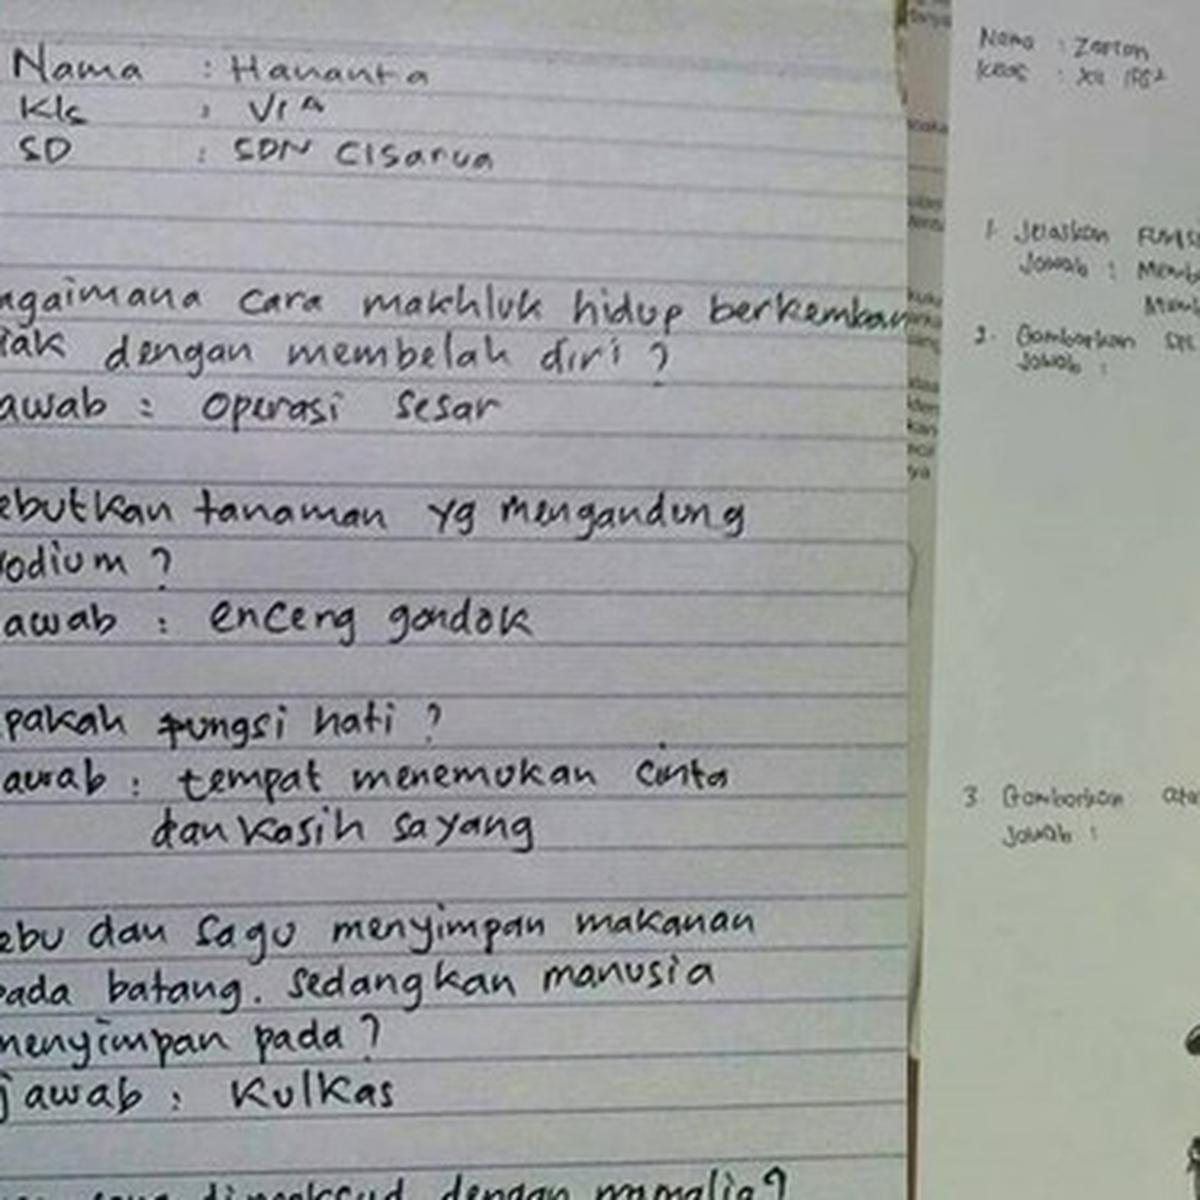 Nama : Hananta
Kls : VI A
SD : SDN Cisarua
agaimana cara makhluk hidup berkemban
iak dengan membelah diri ?
awab : operasi sesar
ebutkan tanaman yg mengandung
yodium ?
awab : enceng gondok
pakah fungsi hati ?
awab : tempat menemukan cinta
dan kasih sayang
ebu dan sagu menyimpan makanan
pada batang. sedangkan manusia
menyimpan pada ?
jawab : kulkas
dimaksud dengan mamalia?
Nama : Zarton
Kelas : XII IPS2
1. Jelaskan
Jawab :
2. Gambarkan
Jawab :
3 Gambarkan
Jawab :